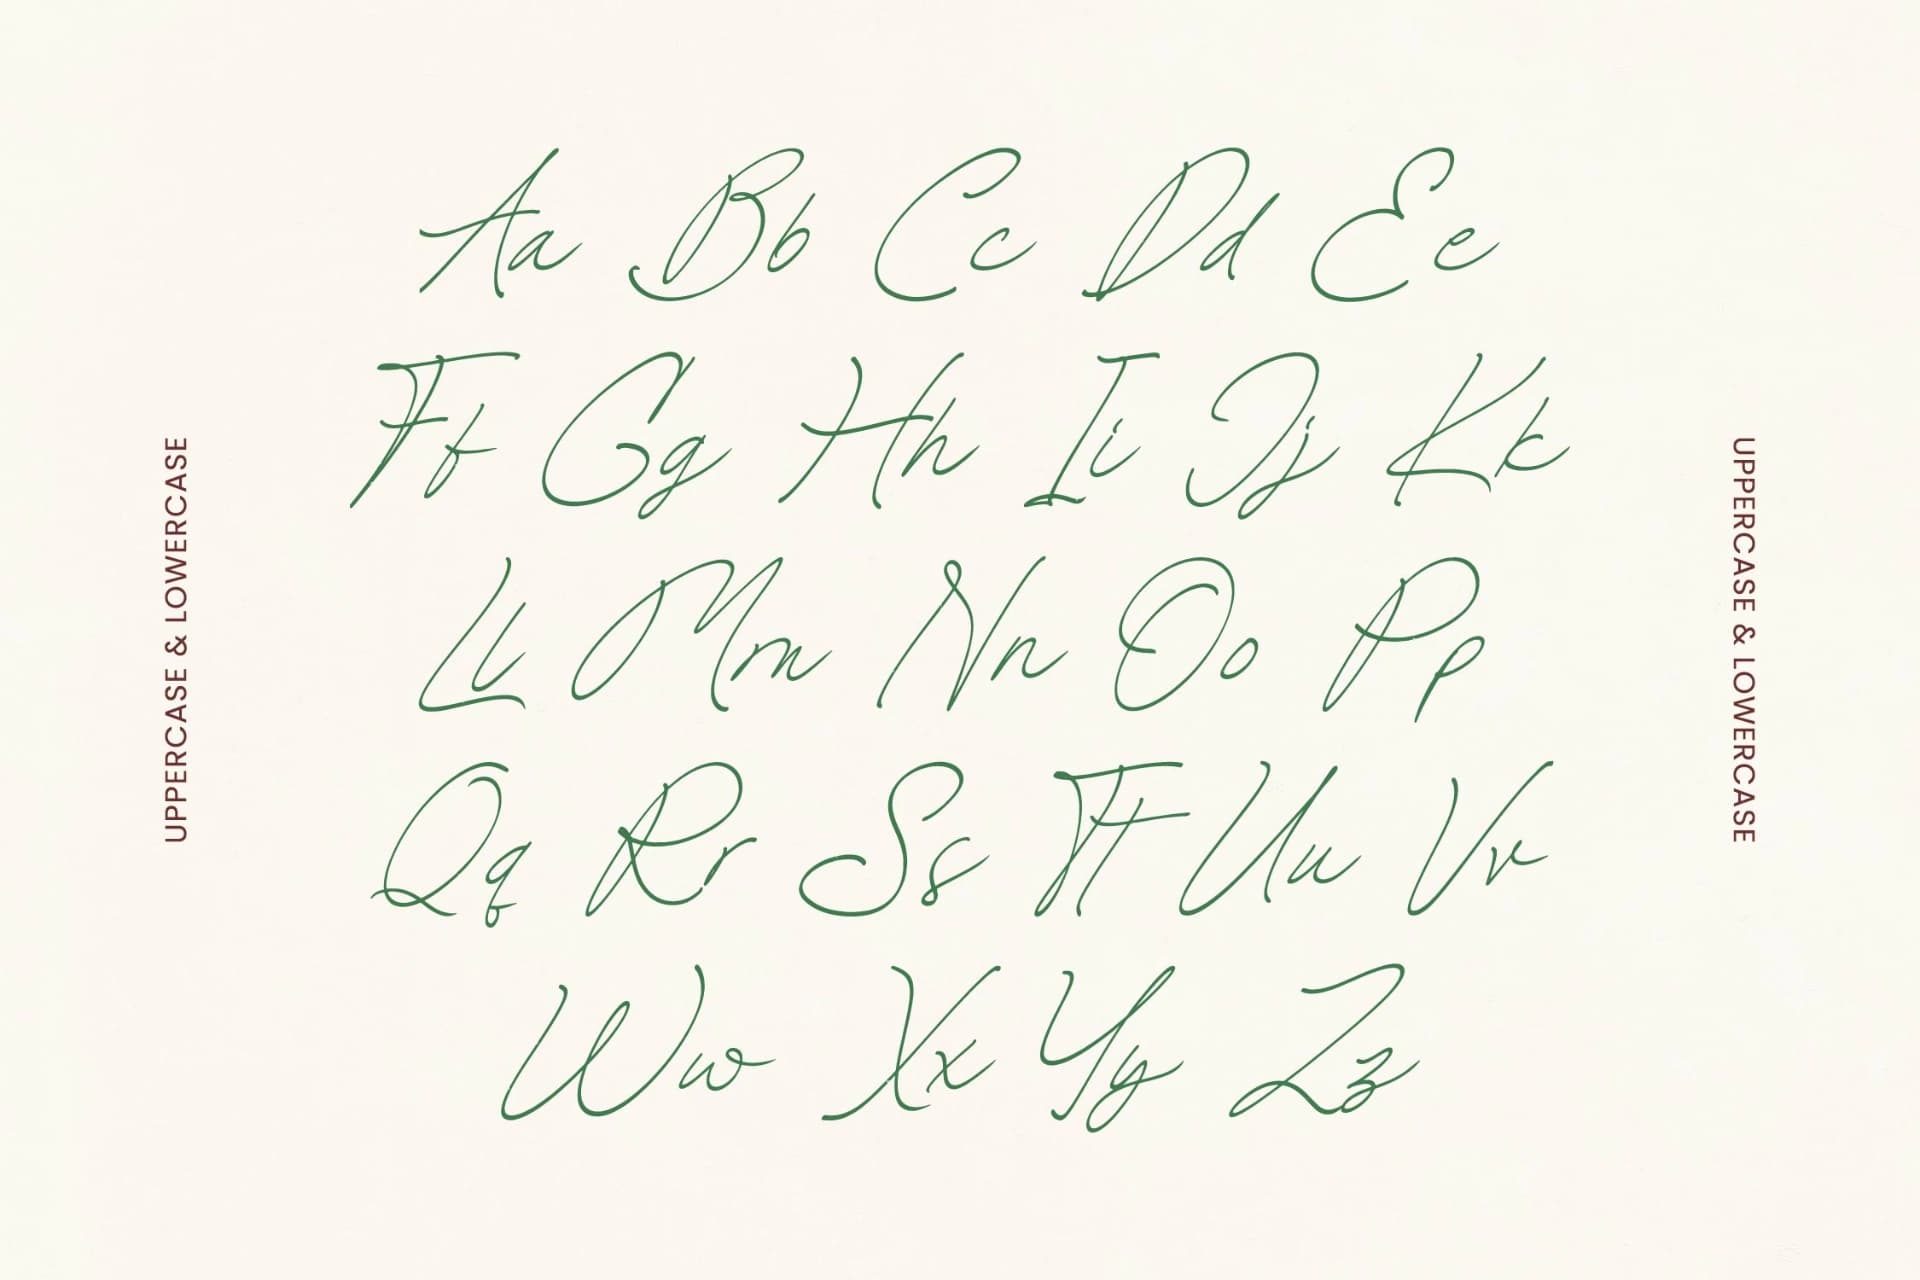 UPPERCASE & LOWERCASE
Aa Bb Cc Dd Ee
Ff Gg Hh Ii Jj Kk
Ll Mm Nn Oo Pp
Qq Rr Ss Tt Uu Vv
Ww Xx Yy Zz
UPPERCASE & LOWERCASE